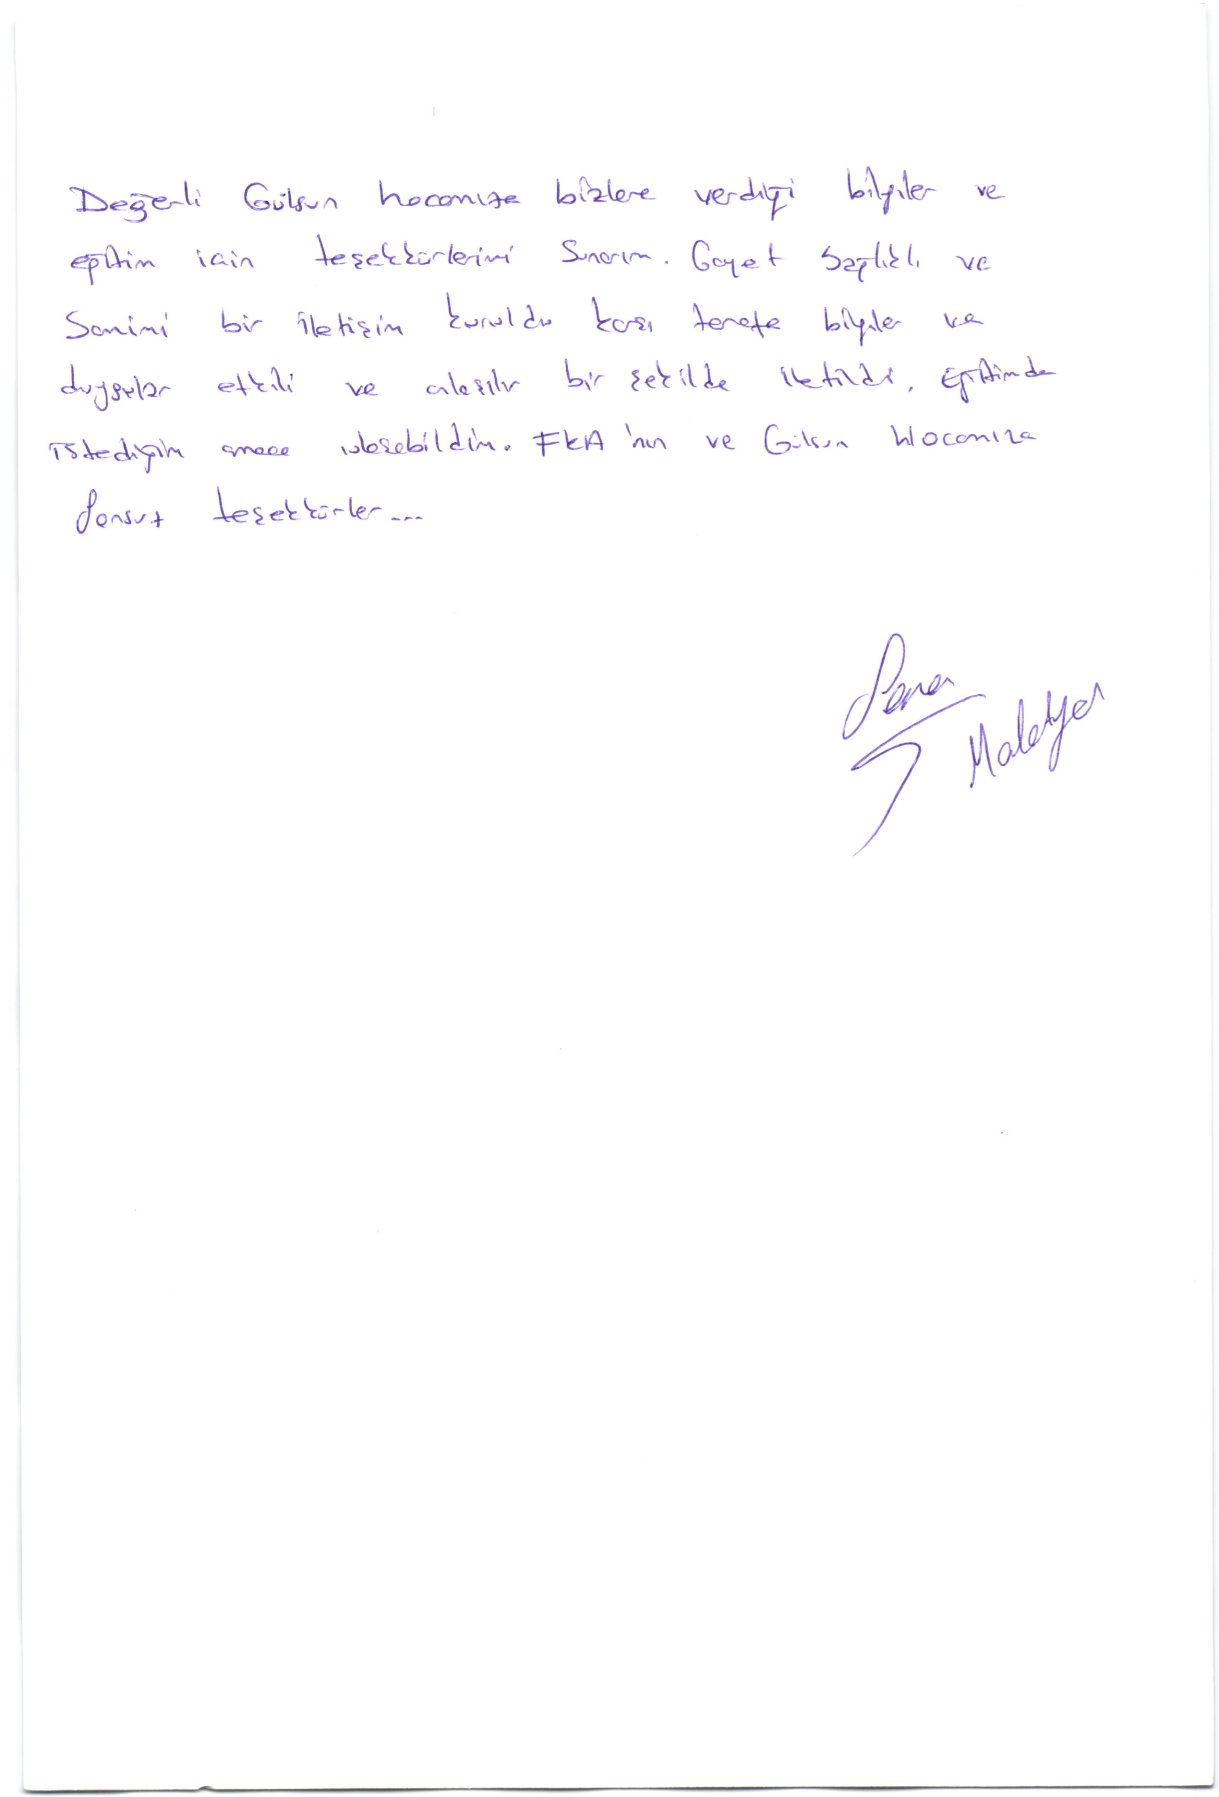 Değerli Gülsun hocamıza bizlere verdiği bilgiler ve
eğitim için teşekkürlerimi sunarım. Gayet sağlıklı ve
Samimi bir iletişim kuruldu karşı tarafa bilgiler ve
duygular etkili ve anlaşılır bir şekilde iletildi. Eğitimde
istediğim amaca ulaşabildim. FKA'nın ve Gülsun Hocamıza
Sonsuz teşekkürler...